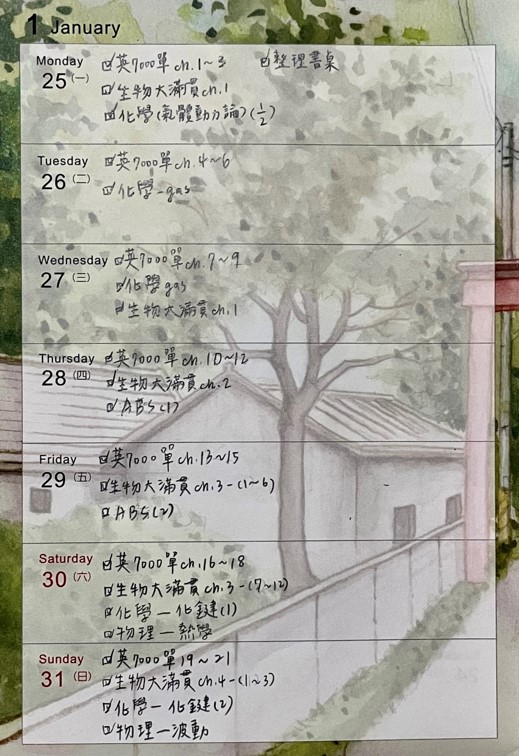 1 January
Monday 25 (一)
英7000單ch.1~3 整理書桌
生物大滿貫ch.1
化學(氣體動力論)(1/2)
Tuesday 26 (二)
英7000單ch.4~6
化學-gas
Wednesday 27 (三)
英7000單ch.7~9
化學gas
生物大滿貫ch.1
Thursday 28 (四)
英7000單ch.10~12
生物大滿貫ch.2
ABS(1)
Friday 29 (五)
英7000單ch.13~15
生物大滿貫ch.3-(1~6)
ABS(2)
Saturday 30 (六)
英7000單ch.16~18
生物大滿貫ch.3-(7~12)
化學—化鍵(1)
物理—熱學
Sunday 31 (日)
英7000單19~21
生物大滿貫ch.4-(1~3)
化學—化鍵(2)
物理—波動